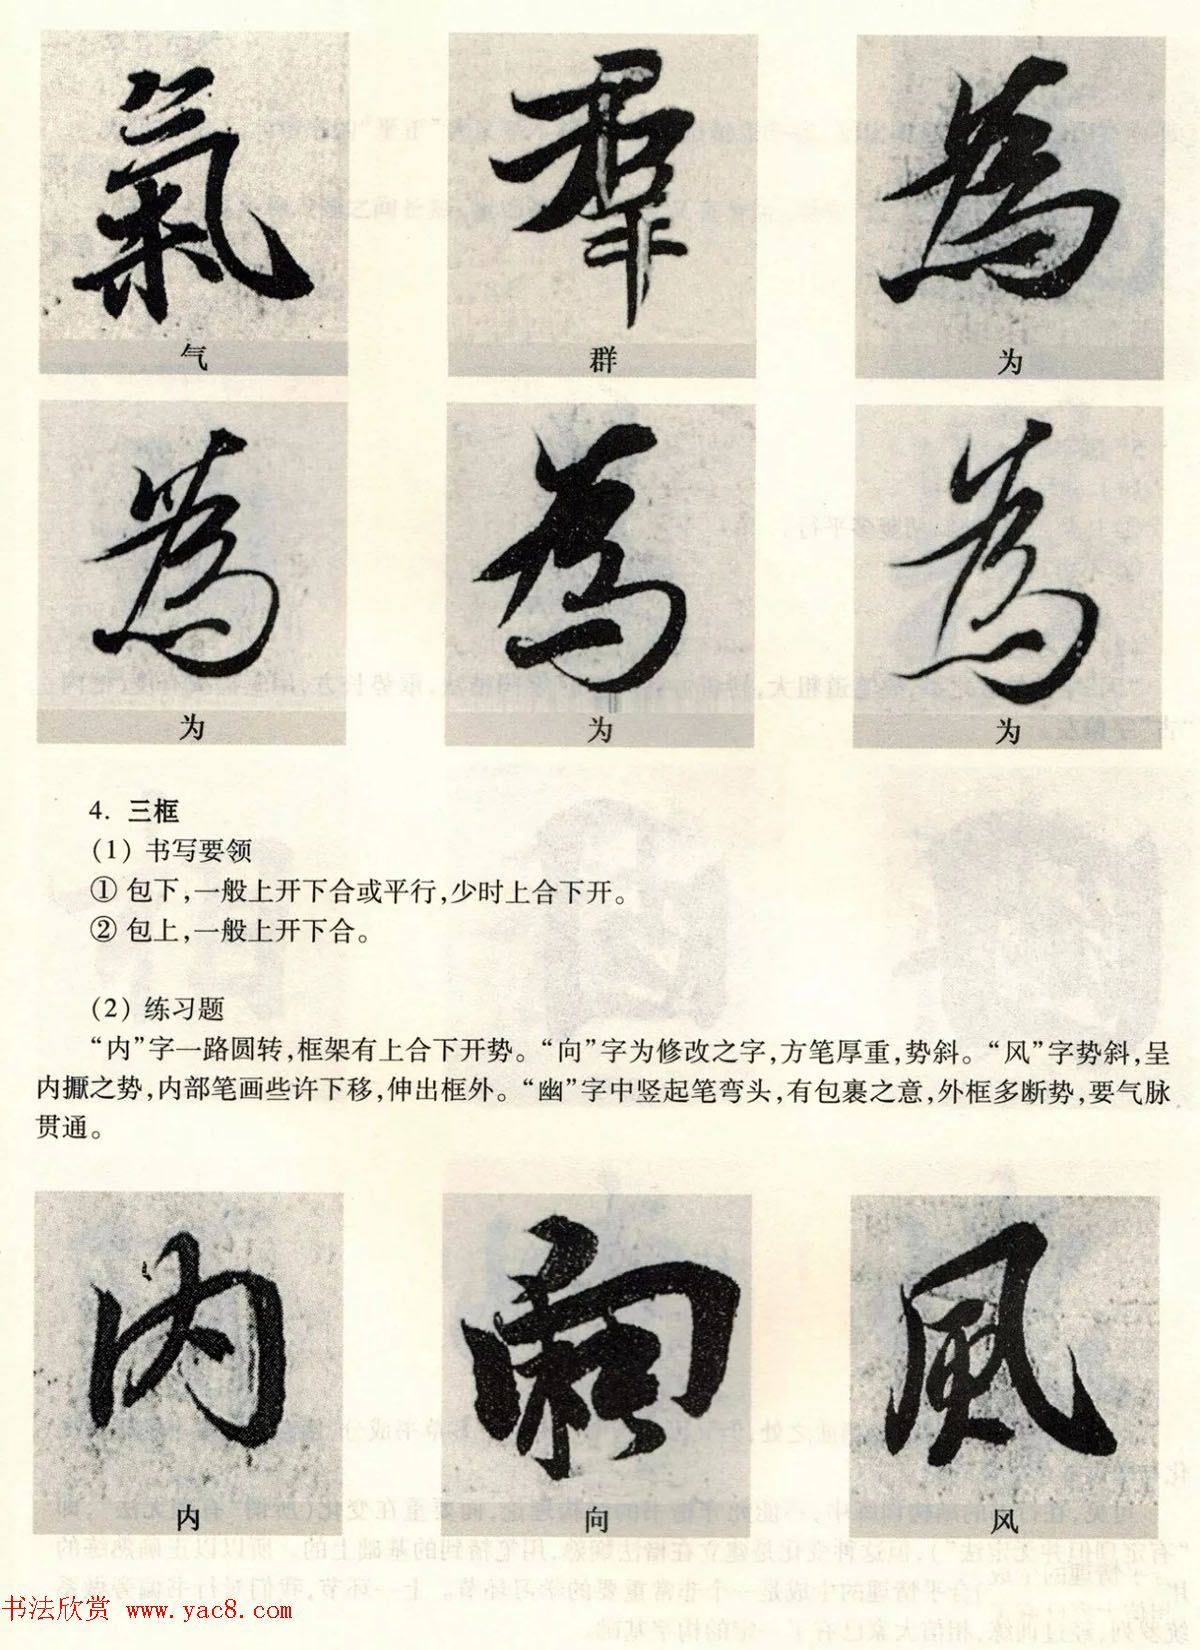 氣 羣 為
气 群 为
為 為 為
为 为 为
4. 三框
（1）书写要领
① 包下，一般上开下合或平行，少时上合下开。
② 包上，一般上开下合。
（2）练习题
“内”字一路圆转，框架有上合下开势。“向”字为修改之字，方笔厚重，势斜。“风”字势斜，呈
内擫之势，内部笔画些许下移，伸出框外。“幽”字中竖起笔弯头，有包裹之意，外框多断势，要气脉
贯通。
内 向 風
内 向 风
书法欣赏 www.yac8.com